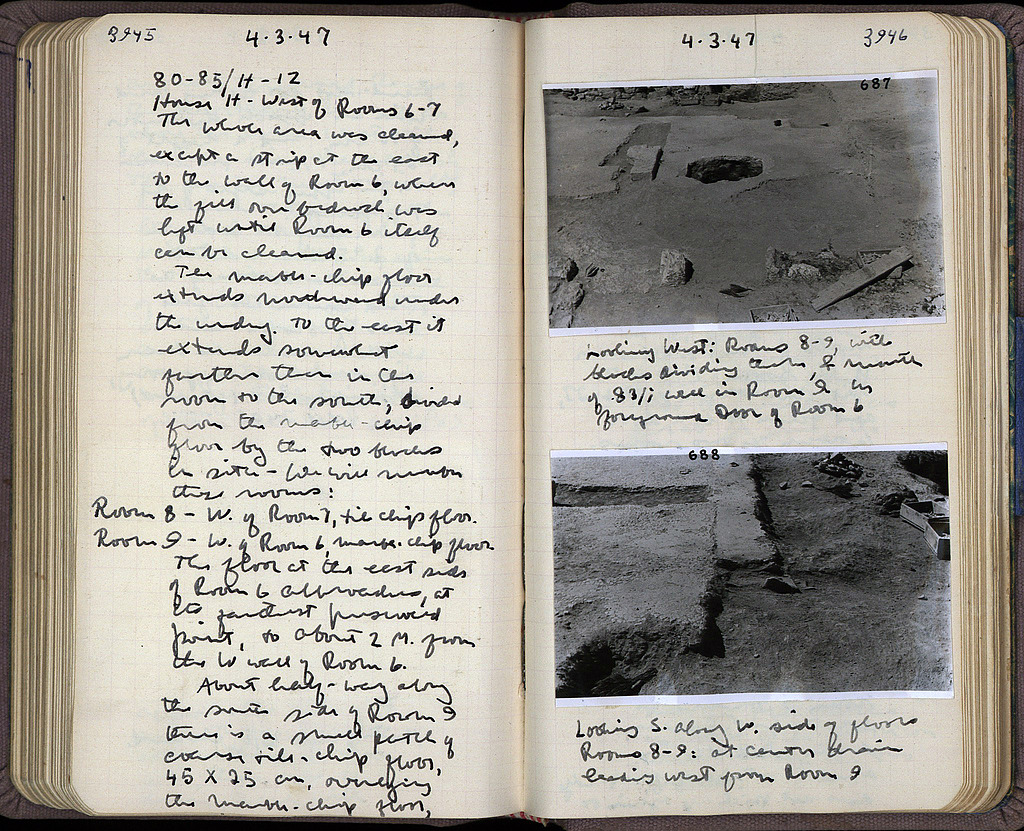 3945
4·3·47
80-85/H-12
House H - West of Rooms 6-7
The whole area was cleaned,
except a strip at the east
to the wall of Room 6, where
the fill over bedrock was
left until Room 6 itself
can be cleaned.
The marble-chip floor
extends northward under
the
to the east it
extends somewhat
further than in the
room to the south, divided
from the marble-chip
floor by the two blocks
in situ - We will number
these rooms:
Room 8 - W. of Room 7, tile chip floor.
Room 9 - W. of Room 6, marble-chip floor
The floor at the east side
of Room 6 approaches, at
its furthest preserved
point, to about 2 M. from
the W wall of Room 6.
About half-way along
the south side of Room 9
there is a small patch of
coarse tile-chip floor,
45 X 25 cm, overlying
the marble-chip floor,
4·3·47
3946
687
Looking West: Rooms 8-9, with
blocks dividing them, & mouth
of 83/ well in Room 9 in
foreground Door of Room 6
688
Looking S. along W. side of floors
Rooms 8-9: at center drain
leading west from Room 9